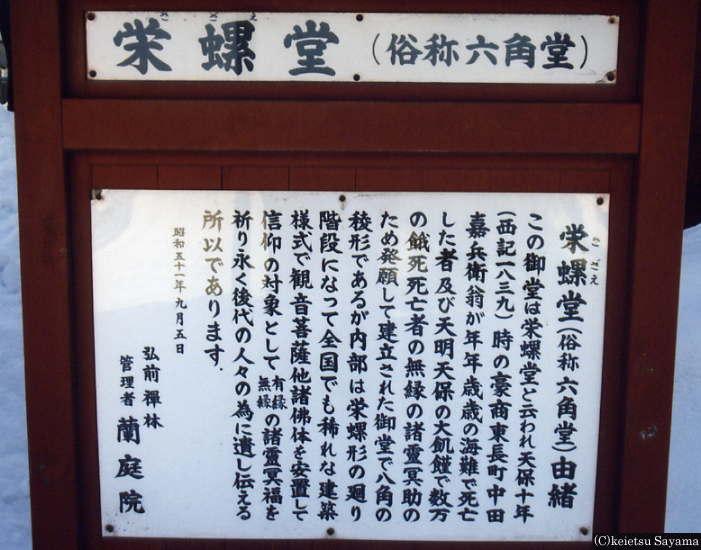 栄螺堂(俗称六角堂)
さざえ
栄螺堂(俗称六角堂)由緒
さざえ
この御堂は栄螺堂と云われ天保十年
(西記一八三九)時の豪商東長町中田
嘉兵衛翁が年年歳歳の海難で死亡
した者及び天明天保の大飢饉で数万
の餓死死亡者の無縁の諸霊冥助の
ため発願して建立された御堂で八角の
稜形であるが内部は栄螺形の廻り
階段になって全国でも稀れな建築
様式で観音菩薩他諸佛体を安置して
信仰の対象として有縁無縁の諸霊冥福を
祈り永く後代の人々の為に遺し伝える
所以であります.
昭和五十一年九月五日
弘前禪林
管理者 蘭庭院
(C)keietsu Sayama